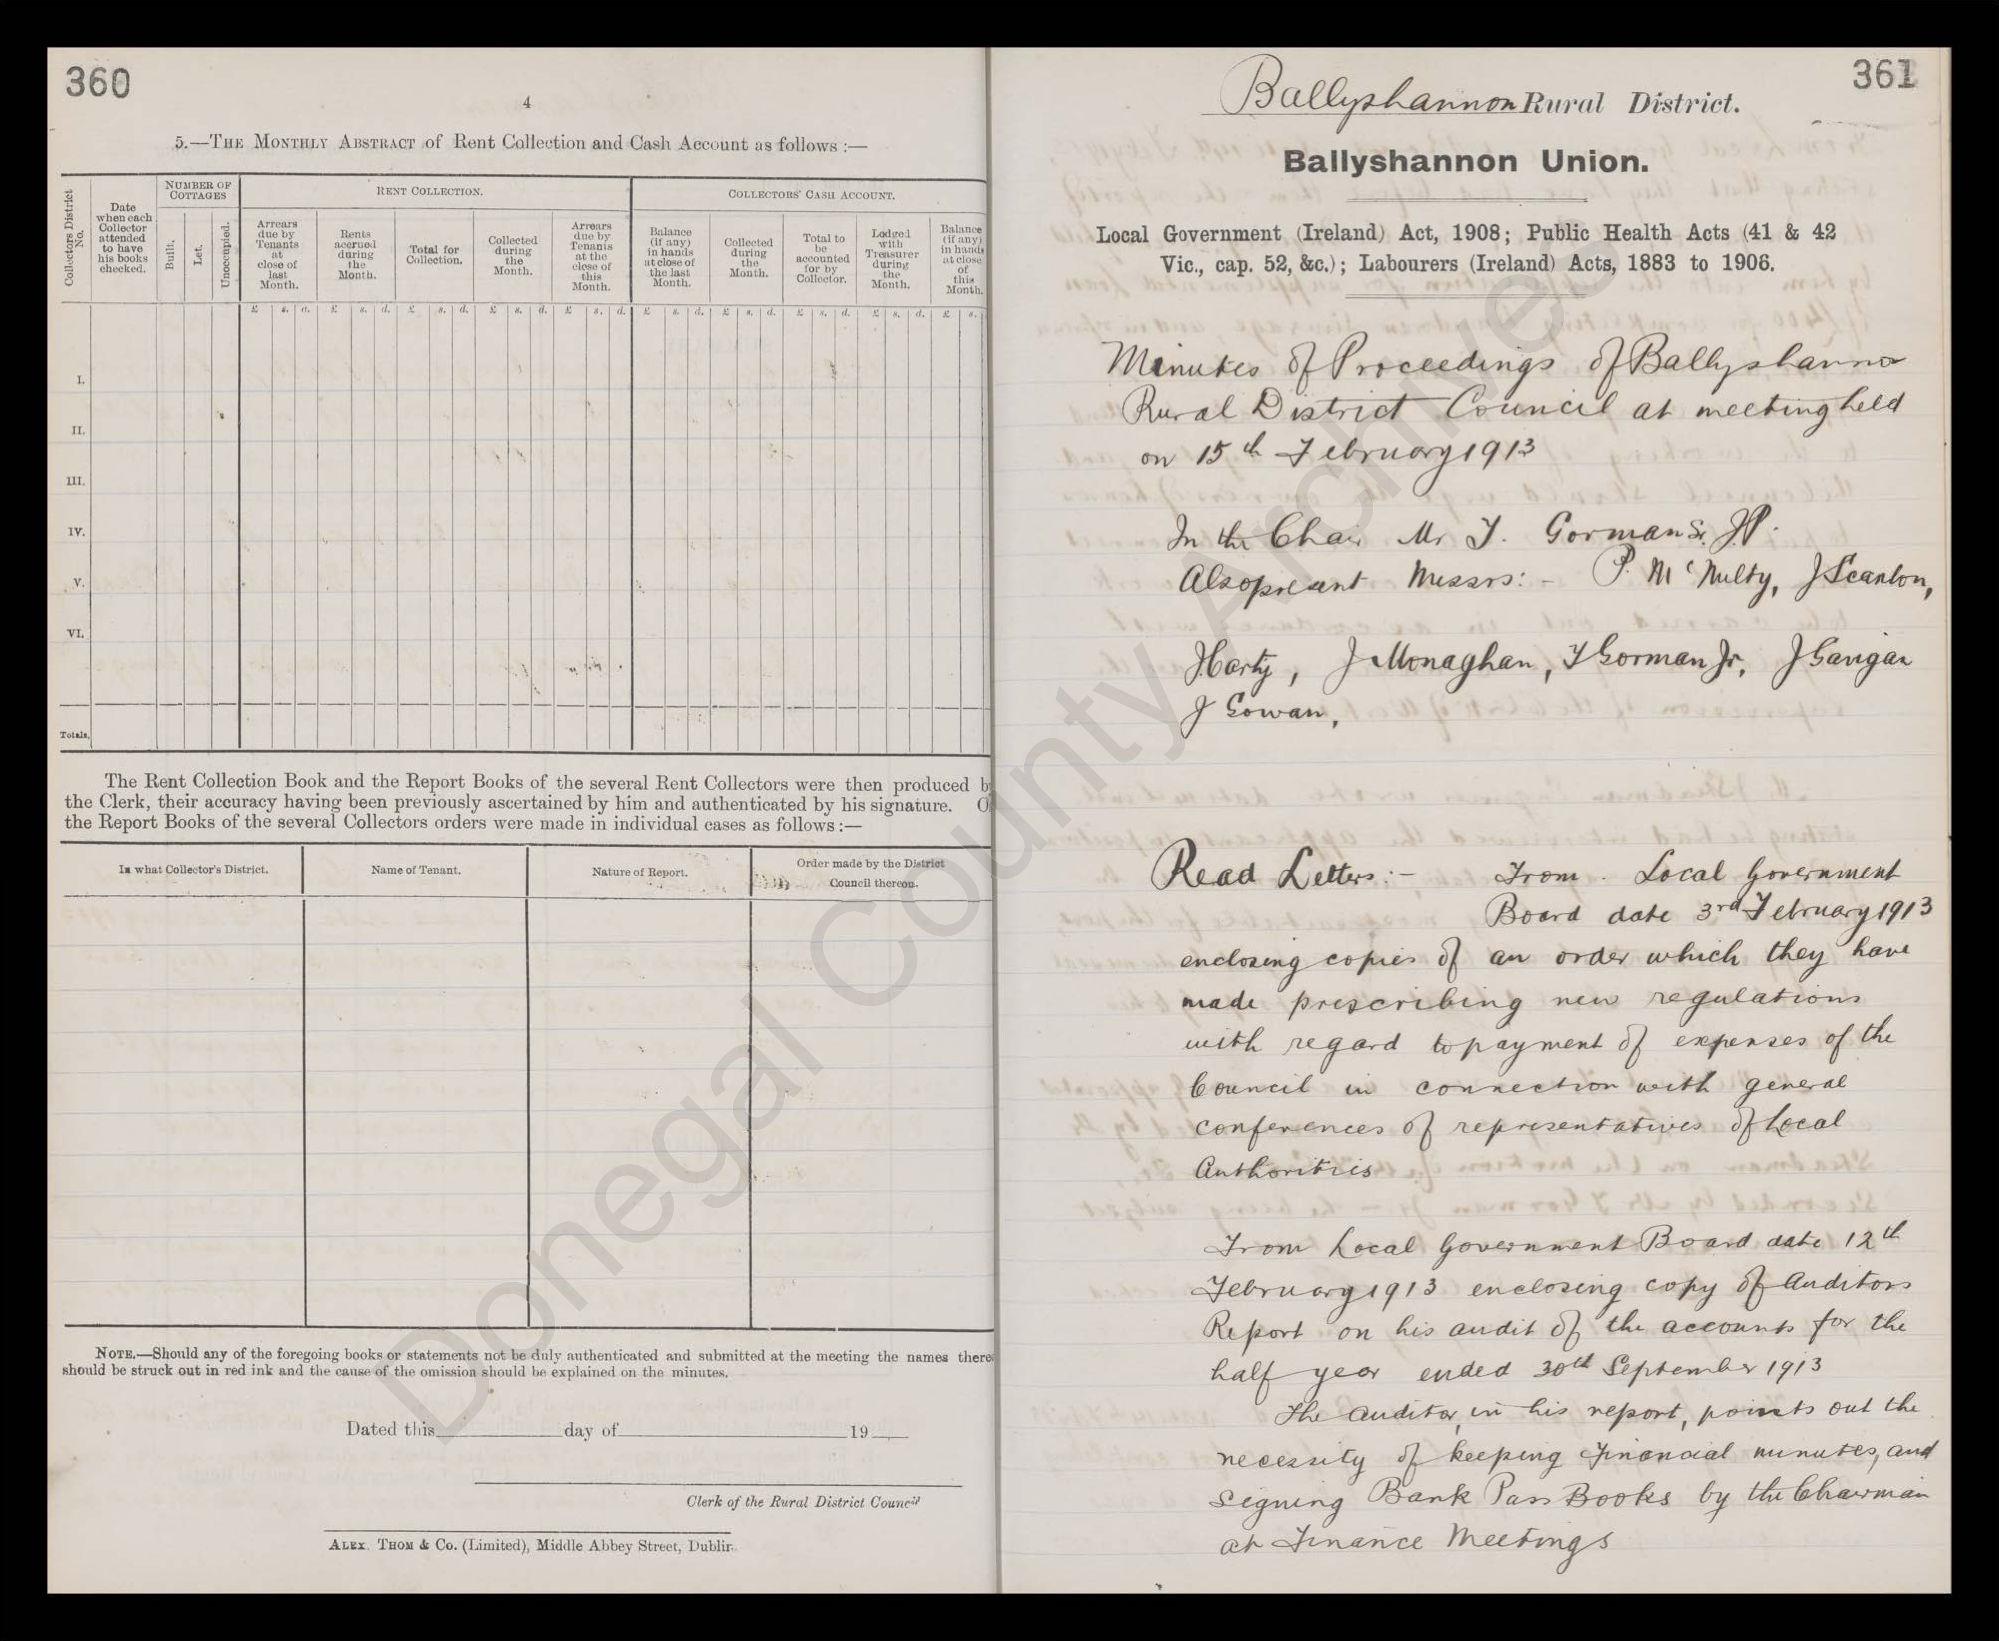 360
4
5.—THE MONTHLY ABSTRACT of Rent Collection and Cash Account as follows :—
Collectors District No.
Date when each Collector attended to have his books checked.
NUMBER OF COTTAGES
Built.
Let.
Unoccupied.
RENT COLLECTION.
Arrears due by Tenants at close of last Month.
Rents accrued during the Month.
Total for Collection.
Collected during the Month.
Arrears due by Tenants at the close of this Month.
COLLECTORS' CASH ACCOUNT.
Balance (if any) in hands at close of the last Month.
Collected during the Month.
Total to be accounted for by Collector.
Lodged with Treasurer during the Month.
Balance (if any) in hands at close of this Month.
£ s. d. £ s. d. £ s. d. £ s. d. £ s. d. £ s. d. £ s. d. £ s. d. £ s. d. £ s.
I.
II.
III.
IV.
V.
VI.
Totals,
The Rent Collection Book and the Report Books of the several Rent Collectors were then produced b
the Clerk, their accuracy having been previously ascertained by him and authenticated by his signature. O
the Report Books of the several Collectors orders were made in individual cases as follows :—
In what Collector's District.
Name of Tenant.
Nature of Report.
Order made by the District
Council thereon.
NOTE.—Should any of the foregoing books or statements not be duly authenticated and submitted at the meeting the names there
should be struck out in red ink and the cause of the omission should be explained on the minutes.
Dated this day of 19
Clerk of the Rural District Council
ALEX. THOM & Co. (Limited), Middle Abbey Street, Dublin.
361
Ballyshannon Rural District.
Ballyshannon Union.
Local Government (Ireland) Act, 1908; Public Health Acts (41 & 42
Vic., cap. 52, &c.); Labourers (Ireland) Acts, 1883 to 1906.
Minutes of Proceedings of Ballyshannon
Rural District Council at meeting held
on 15th February 1913
In the Chair Mr T. Gorman Sr. J.P.
Also present Messrs:- P. McNulty, J Scanlon,
J Harty, J Monaghan, T Gorman Jr, J Gavigan
J Gowan,
Read Letters:- From Local Government
Board date 3rd February 1913
enclosing copies of an order which they have
made prescribing new regulations
with regard to payment of expenses of the
Council in connection with general
conferences of representatives of Local
Authorities
From Local Government Board date 12th
February 1913 enclosing copy of Auditors
Report on his audit of the accounts for the
half year ended 30th September 1913
The Auditor, in his report, points out the
necessity of keeping Financial minutes, and
signing Bank Pass Books by the Chairman
at Finance Meetings
Donegal County Archives